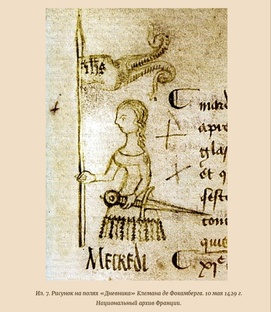 jħs
C mard
apre
glas
et q
sest
com
quie
Mecredi C xiᵉ
Ил. 7. Рисунок на полях «Дневника» Клемана де Фокамберга. 10 мая 1429 г.
Национальный архив Франции.